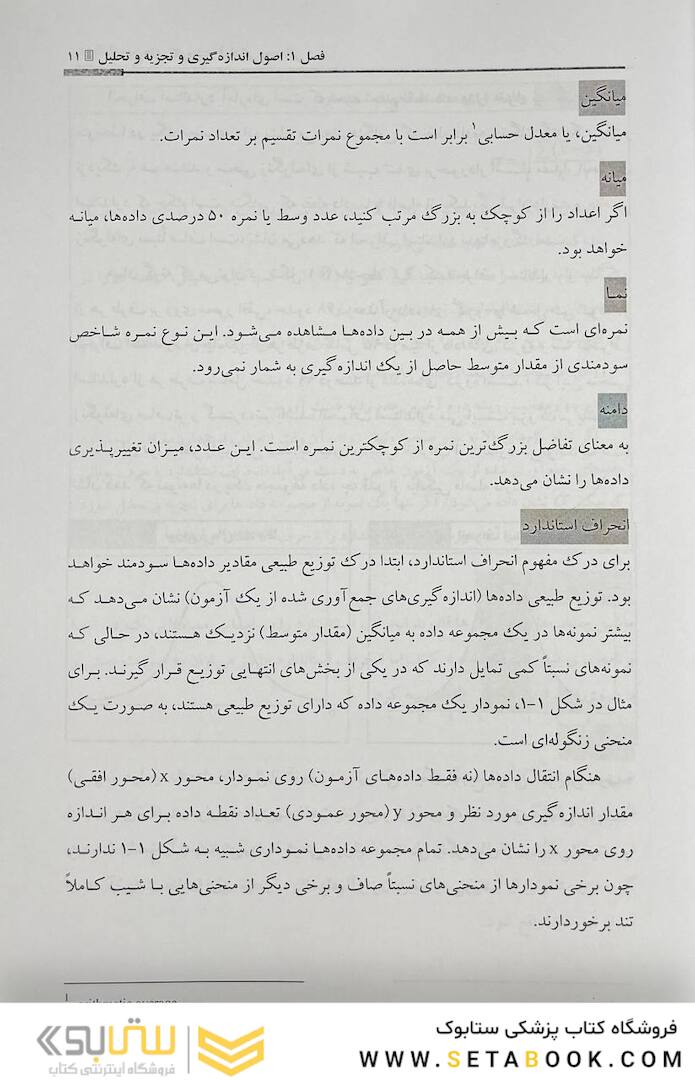 فصل ۱: اصول اندازه‌گیری و تجزیه و تحلیل ۱۱
میانگین
میانگین، یا معدل حسابی۱ برابر است با مجموع نمرات تقسیم بر تعداد نمرات.
میانه
اگر اعداد را از کوچک به بزرگ مرتب کنید، عدد وسط یا نمره ۵۰ درصدی داده‌ها، میانه
خواهد بود.
نما
نمره‌ای است که بیش از همه در بین داده‌ها مشاهده می‌شود. این نوع نمره شاخص
سودمندی از مقدار متوسط حاصل از یک اندازه‌گیری به شمار نمی‌رود.
دامنه
به معنای تفاضل بزرگ‌ترین نمره از کوچکترین نمره است. این عدد، میزان تغییرپذیری
داده‌ها را نشان می‌دهد.
انحراف استاندارد
برای درک مفهوم انحراف استاندارد، ابتدا درک توزیع طبیعی مقادیر داده‌ها سودمند خواهد
بود. توزیع طبیعی داده‌ها (اندازه‌گیری‌های جمع‌آوری شده از یک آزمون) نشان می‌دهد که
بیشتر نمونه‌ها در یک مجموعه داده به میانگین (مقدار متوسط) نزدیک هستند، در حالی که
نمونه‌های نسبتاً کمی تمایل دارند که در یکی از بخش‌های انتهایی توزیع قرار گیرند. برای
مثال در شکل ۱-۱، نمودار یک مجموعه داده که دارای توزیع طبیعی هستند، به صورت یک
منحنی زنگوله‌ای است.
هنگام انتقال داده‌ها (نه فقط داده‌های آزمون) روی نمودار، محور x (محور افقی)
مقدار اندازه‌گیری مورد نظر و محور y (محور عمودی) تعداد نقطه داده برای هر اندازه
روی محور x را نشان می‌دهد. تمام مجموعه داده‌ها نموداری شبیه به شکل ۱-۱ ندارند،
چون برخی نمودارها از منحنی‌های نسبتاً صاف و برخی دیگر از منحنی‌هایی با شیب کاملاً
تند برخوردارند.
فروشگاه کتاب پزشکی ستابوک
WWW.SETABOOK.COM
ستابوک
فروشگاه اینترنتی کتاب